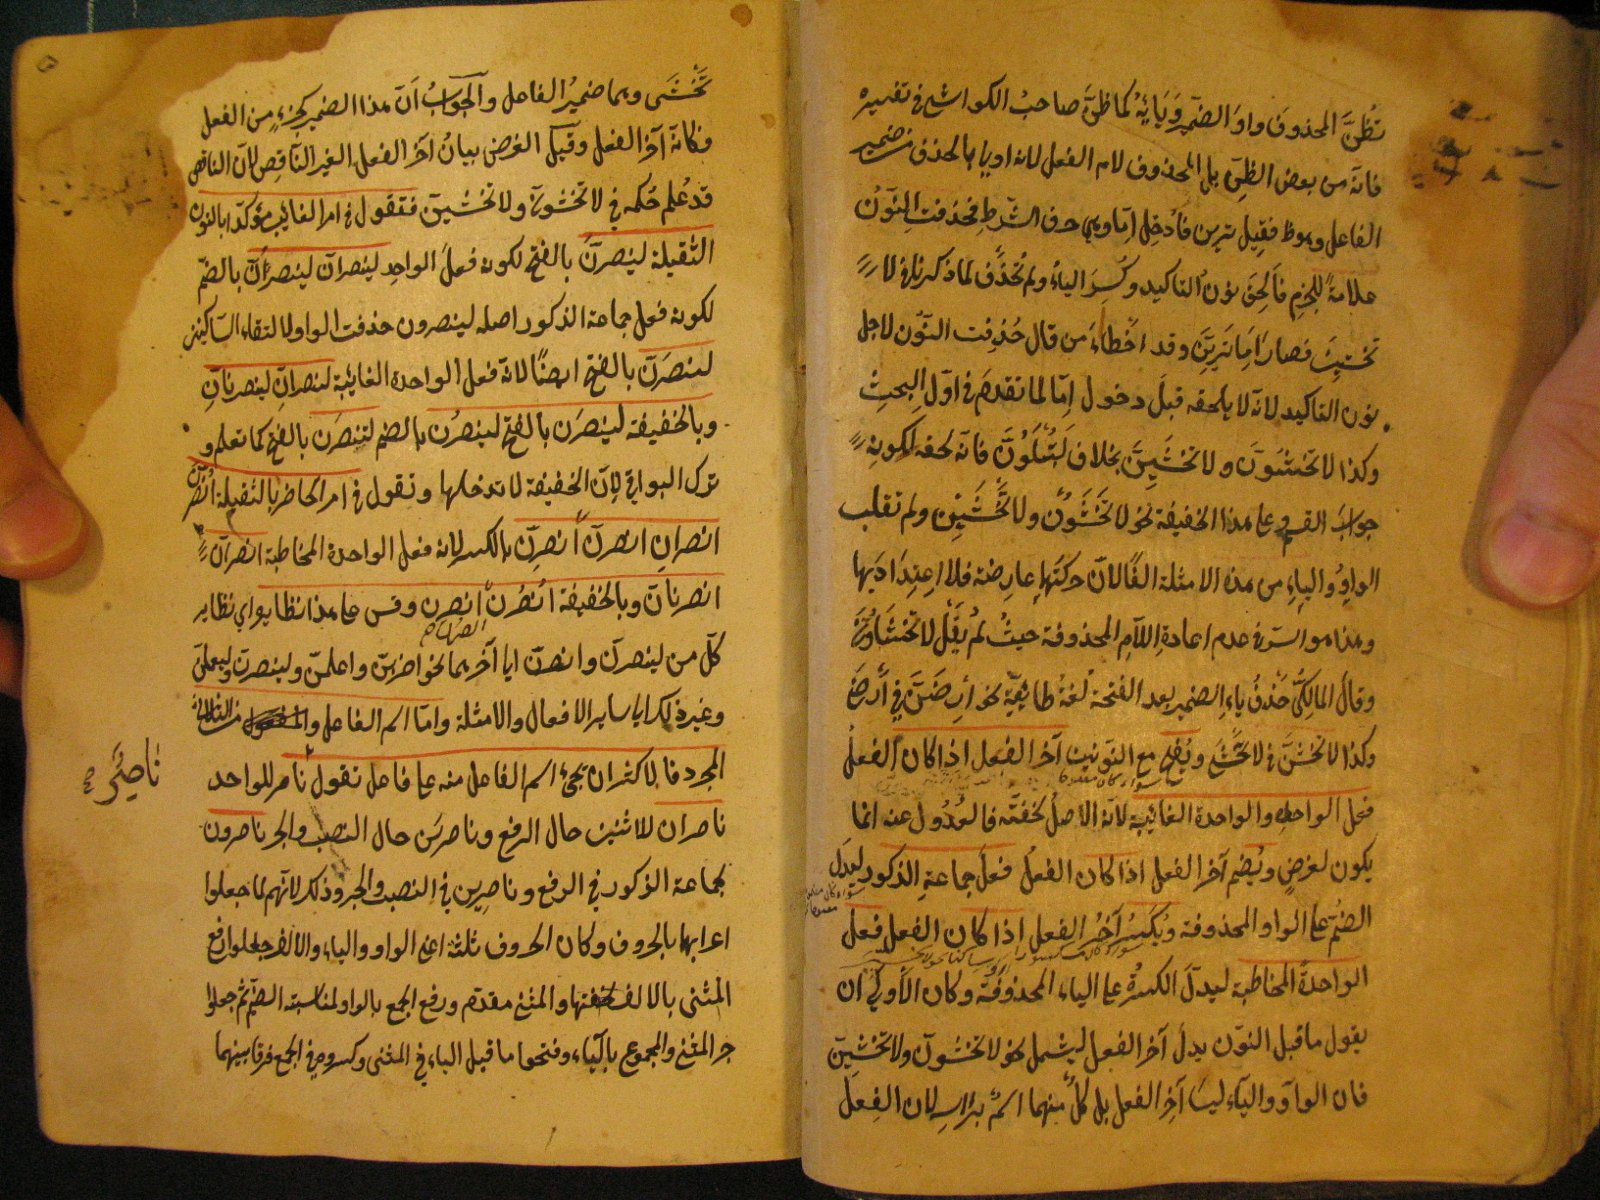 تظن المحذوف واو الضمير وياءه كما ظن صاحب الكواشي في تفسيره
فانه من بعض الظن بل المحذوف لام الفعل لانه اولى بالحذف من ضمير
الفاعل وهو ظ فقيل ترين فادخل اما وهي حرف الشرط فحذفت النون
علامة للجزم فالحق نون التاكيد وكسر الياء ولم تحذف لما ذكرنا في لا
تخشين فصار اما ترين وقد اخطاء من قال حذفت النون لاجل
نون التاكيد لانه لا يلحقه قبل دخول اما لما تقدم في اول البحث
وكذا لا تخشون ولا تخشين بخلاف لتبلون فانه لحقه لكونه
جواب القسم على هذا الخفيفة نحو لا تخشون ولا تخشين ولم تقلب
الواو والياء من هذه الامثلة الفا لان حركتها عارضة فلا اعتداد بها
وهذا هو السر في عدم اعادة اللام المحذوفة حيث لم يقل لا تخشاون
وقال المالكي حذف ياء الضمير بعد الفتحة لغة طائية نحو ارضن في ارضى
وكذا لا تخشن في لا تخشى ويفتح مع النونين آخر الفعل اذا كان الفعل
فعل الواحد والواحدة الغائبة لانه الاصل لخفته فالعدول عنه انما
يكون لغرض ويضم آخر الفعل اذا كان الفعل فعل جماعة الذكور ليدل
الضم على الواو المحذوفة ويكسر آخر الفعل اذا كان الفعل فعل
الواحدة المخاطبة ليدل الكسرة على الياء المحذوفة وكان الاولى ان
يقول ما قبل النون بدل آخر الفعل ليشمل نحو لا تخشون ولا تخشين
فان الواو والياء ليسا آخر الفعل بل كل منهما اسم براسه لان الفعل
تخشى وهما ضمير الفاعل والجواب ان هذا الضمير كجزء من الفعل
فكانه آخر الفعل وقيل الغرض بيان آخر الفعل الغير الناقص لان الناقص
قد علم حكمه في لا تخشون ولا تخشين فتقول في امر الغائب مؤكدا بالنون
الثقيلة لينصرن بالفتح لكونه فعل الواحد لينصران لينصرن بالضم
لكونه فعل جماعة الذكور اصله لينصرون حذفت الواو لالتقاء الساكنين
لتنصرن بالفتح ايضا لانه فعل الواحدة الغائبة لتنصران لينصرنان
وبالخفيفة لينصرن بالفتح لينصرن بالضم لتنصرن بالفتح كما تعلم و
ترك البواقي لان الخفيفة لا تدخلها وتقول في امر الحاضر بالثقيلة انصرن
انصران انصرن انصرن بالكسر لانه فعل الواحدة المخاطبة انصران
انصرنان وبالخفيفة انصرن انصرن انصرن وقس على هذا نظايره اي نظاير
كل من لينصرن وانصرن الى آخرهما نحو اضربن واعلمن ولينصرن وليعلمن
وغير ذلك الى ساير الافعال والامثلة واما اسم الفاعل والمفعول من الثلاثي
المجرد فالاكثر ان يجئ اسم الفاعل منه على فاعل تقول ناصر للواحد
ناصران للاثنين حال الرفع وناصرين حال النصب والجر ناصرون
لجماعة الذكور في الرفع وناصرين في النصب والجر وذلك لانهم لما جعلوا
اعرابها بالحروف وكان الحروف ثلثة اعني الواو والياء والالف جعلوا رفع
المثنى بالالف لخفتها والمثنى مقدم ورفع الجمع بالواو لمناسبته الضم ثم جعلوا
جر المثنى والمجموع بالياء وفتحوا ما قبل الياء في المثنى وكسروه في الجمع فرقا بينهما